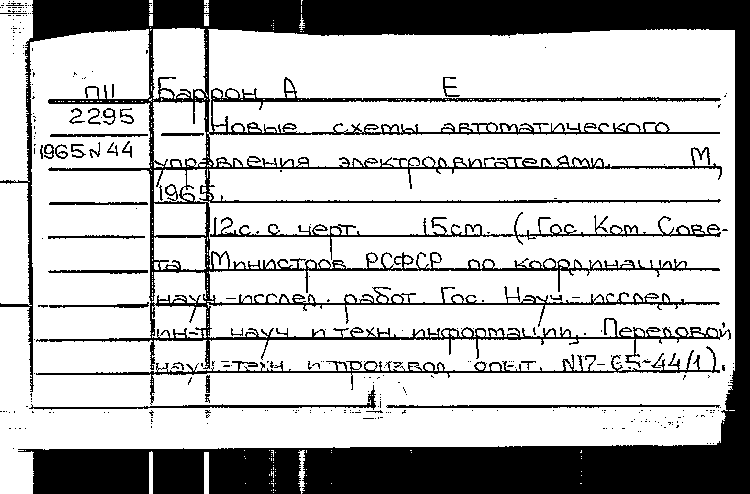 П11 Баррон, А Е
2295 Новые схемы автоматического
1965 N 44 управления электродвигателями. М.,
1965.
12 с. с черт. 15 см. (Гос. Ком. Сове-
та Министров РСФСР по координации
науч.-исслед. работ. Гос. Науч.-исслед.
ин-т науч. и техн. информации. Передовой
науч.-техн. и производ. опыт. N17-65-44/1).